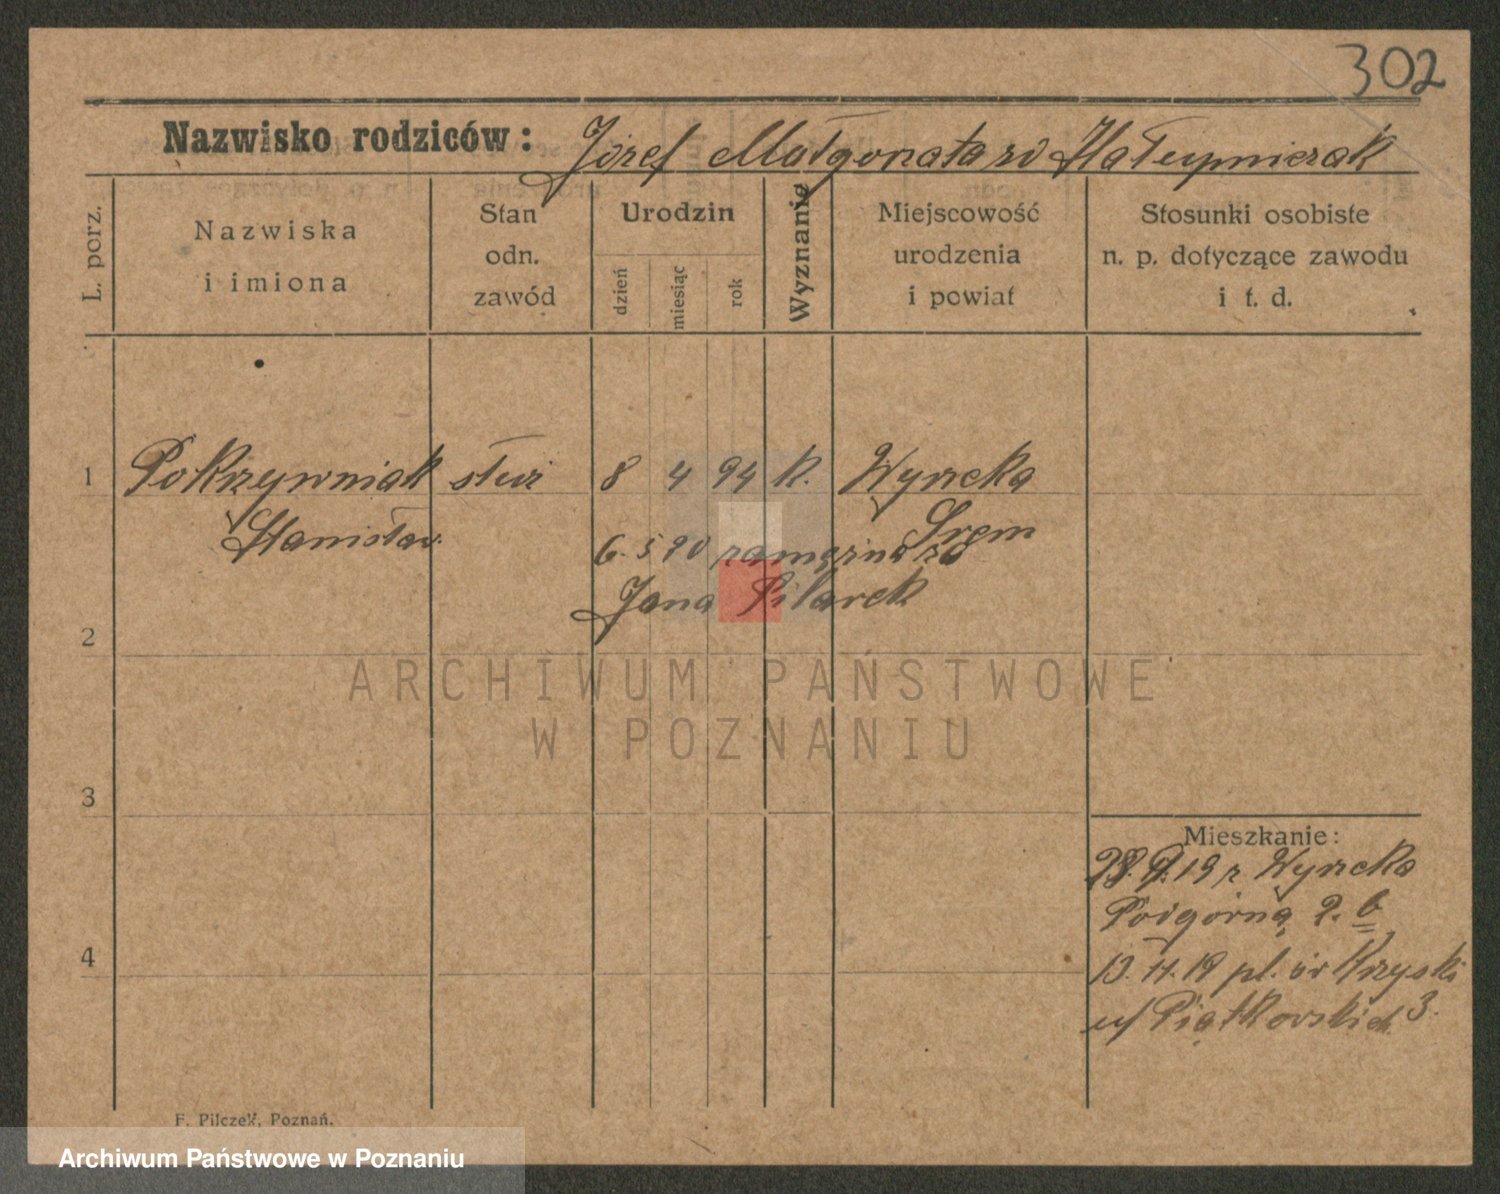 302
Nazwisko rodziców: Józef Małgorzata zd Hałupniczak
L. porz.
Nazwiska
i imiona
Stan
odn.
zawód
Urodzin
dzień
miesiąc
rok
Wyznanie
Miejscowość
urodzenia
i powiat
Stosunki osobiste
n. p. dotyczące zawodu
i t. d.
1 Pokrzywniak 8 4 94 k. Wyrzeka
Stanisław. Śrem
6. 5 20 zamężna zd
Jana Pilarek
2
ARCHIWUM PAŃSTWOWE
W POZNANIU
3
Mieszkanie:
28. 9. 19 z Wyrzeka
Podgórna 2. b
4
13. 11. 19 pl. św Krzyski 3.
u/ Piątkowskich
F. Pilczek, Poznań.
Archiwum Państwowe w Poznaniu